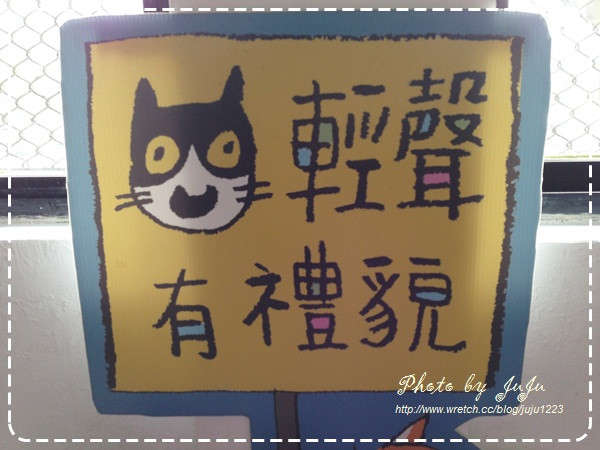 輕聲
有禮貌
Photo by JuJu
http://www.wretch.cc/blog/juju1223